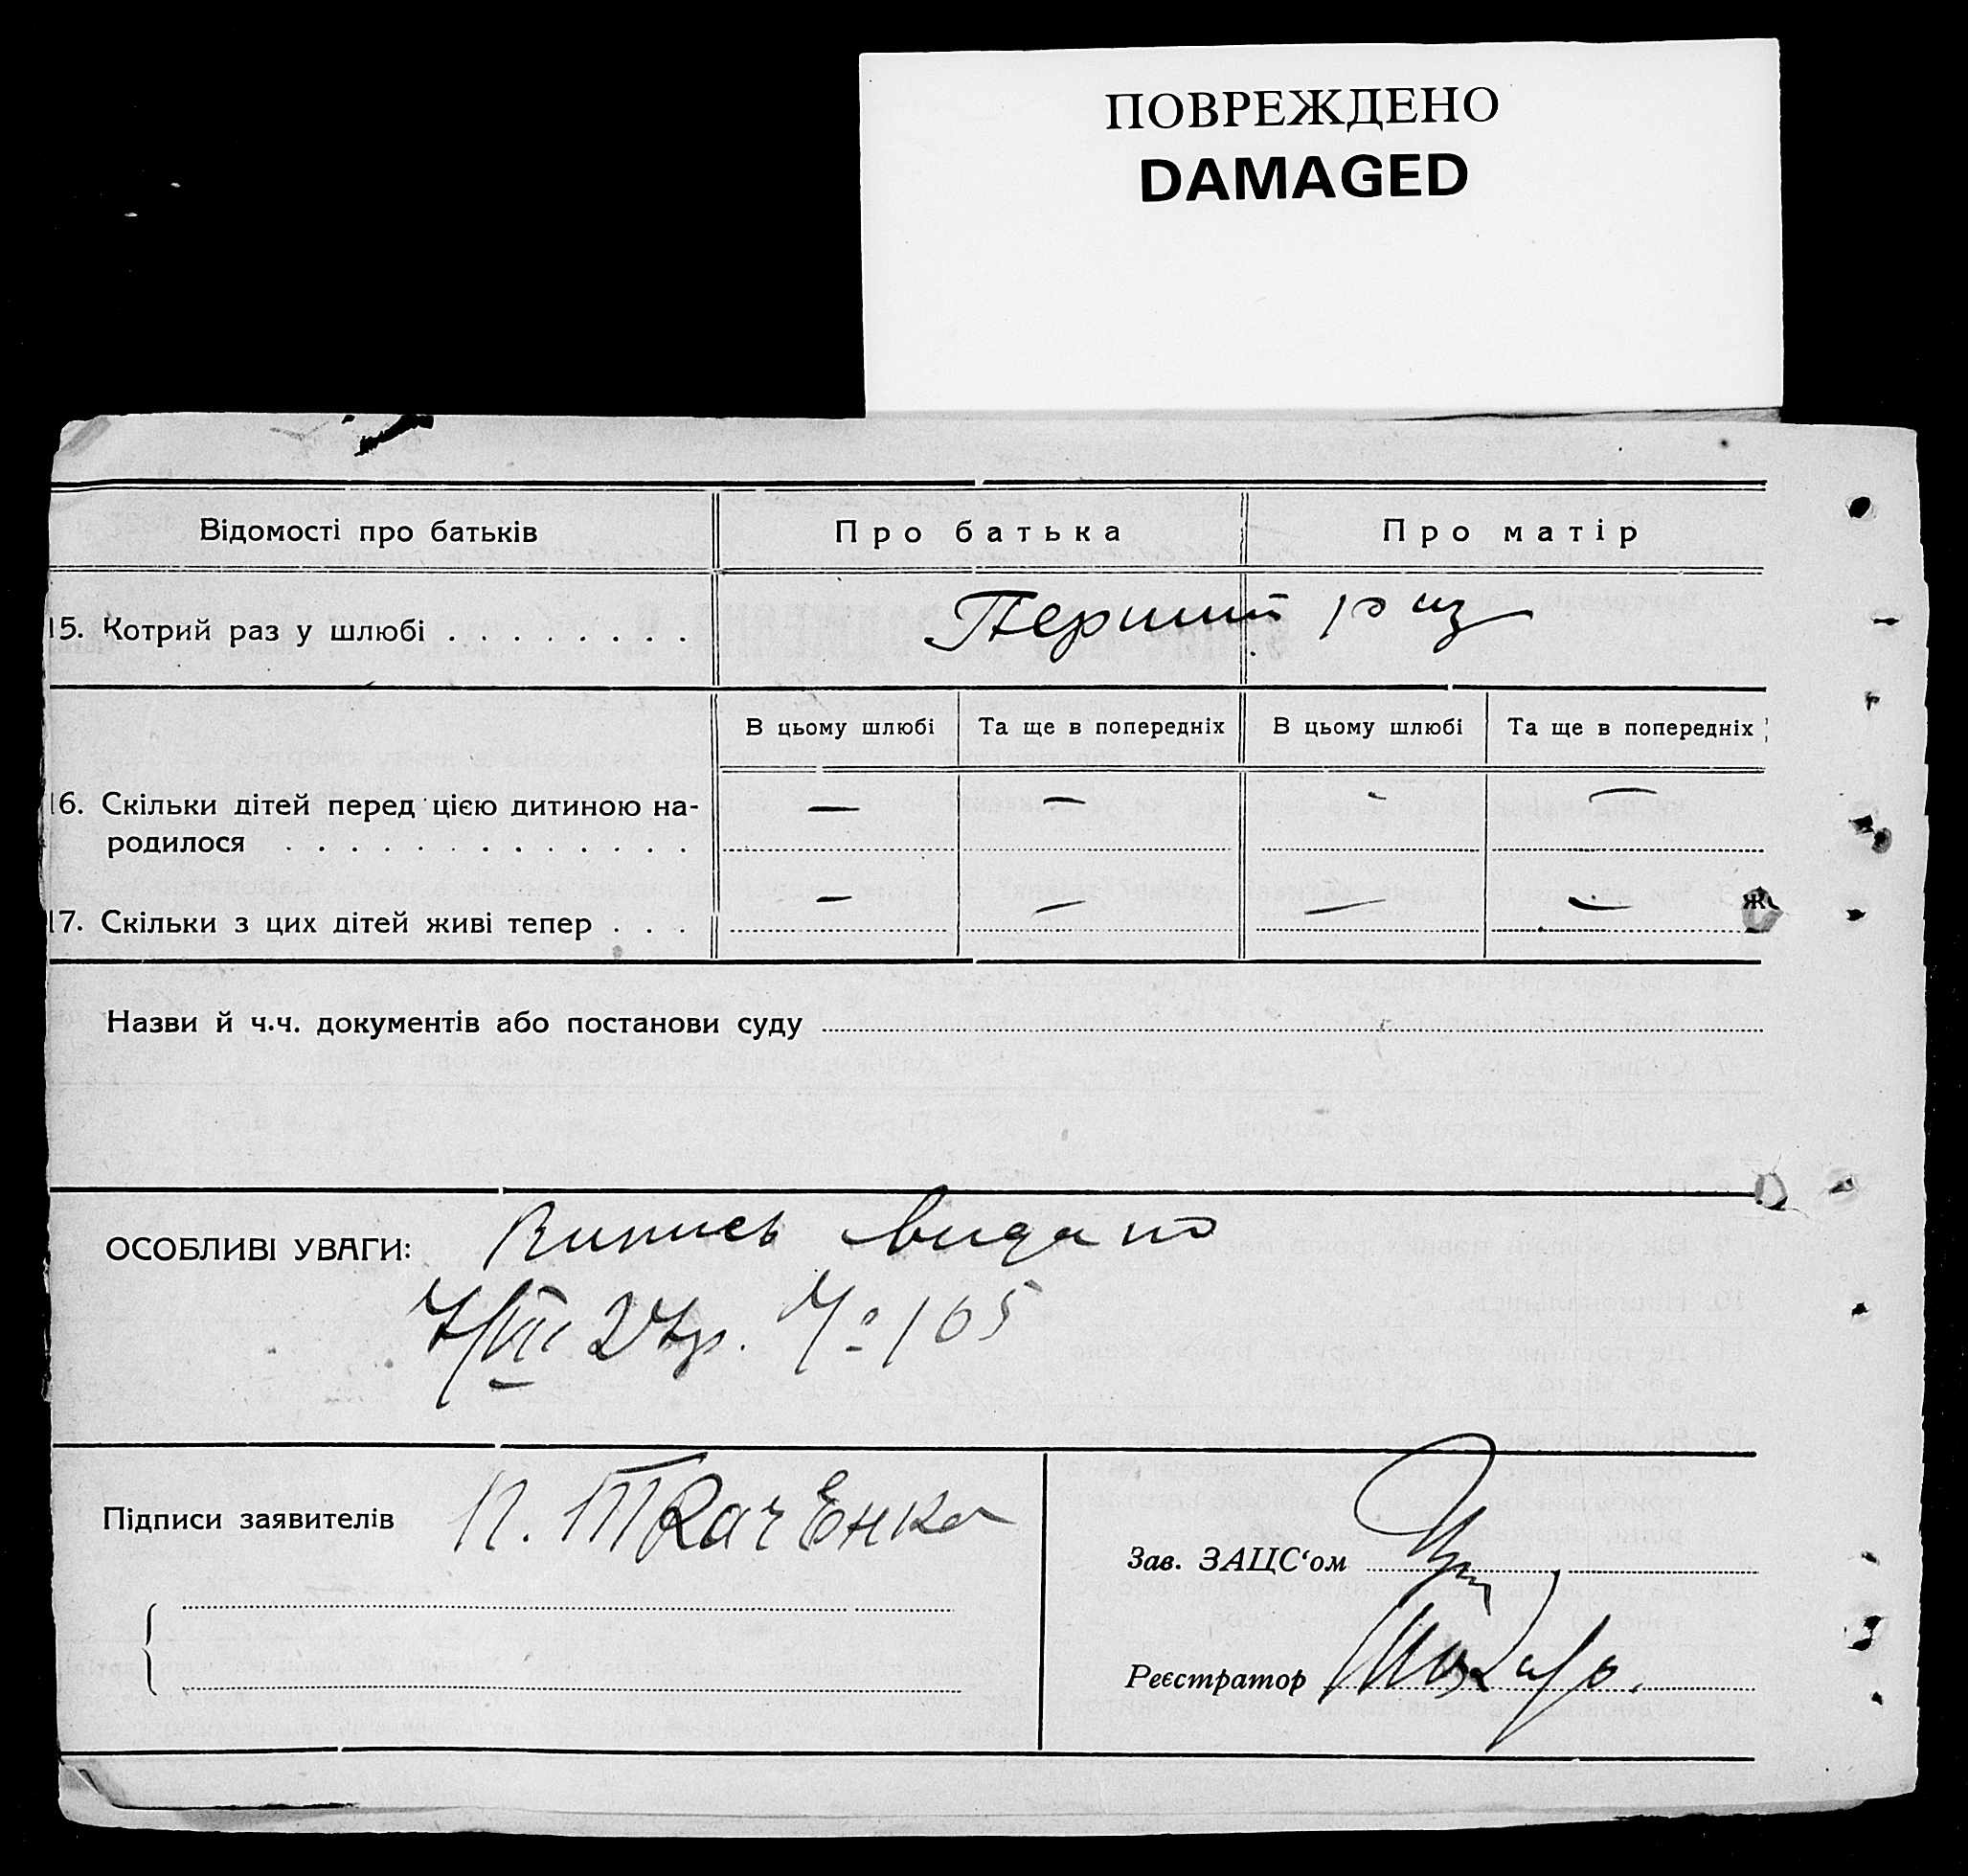 ПОВРЕЖДЕНО
DAMAGED
Відомості про батьків
Про батька
Про матір
15. Котрий раз у шлюбі . . . . . . . .
Перший раз
В цьому шлюбі
Та ще в попередніх
В цьому шлюбі
Та ще в попередніх
16. Скільки дітей перед цією дитиною на-
родилося . . . . . . . . . . . . . .
— — - —
17. Скільки з цих дітей живі тепер . . .
— — — —
Назви й ч.ч. документів або постанови суду
ОСОБЛИВІ УВАГИ:
Випись видано
7/VII 27р. № 165
Підписи заявителів
П. Ткаченко
Зав. ЗАЦС'ом
Реєстратор